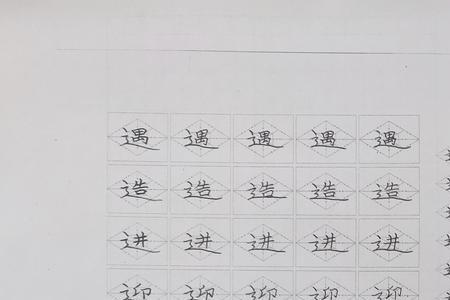 遇 遇 遇 遇 遇
造 造 造 造 造
进 进 进 进 进
迎 迎 迎 迎 迎